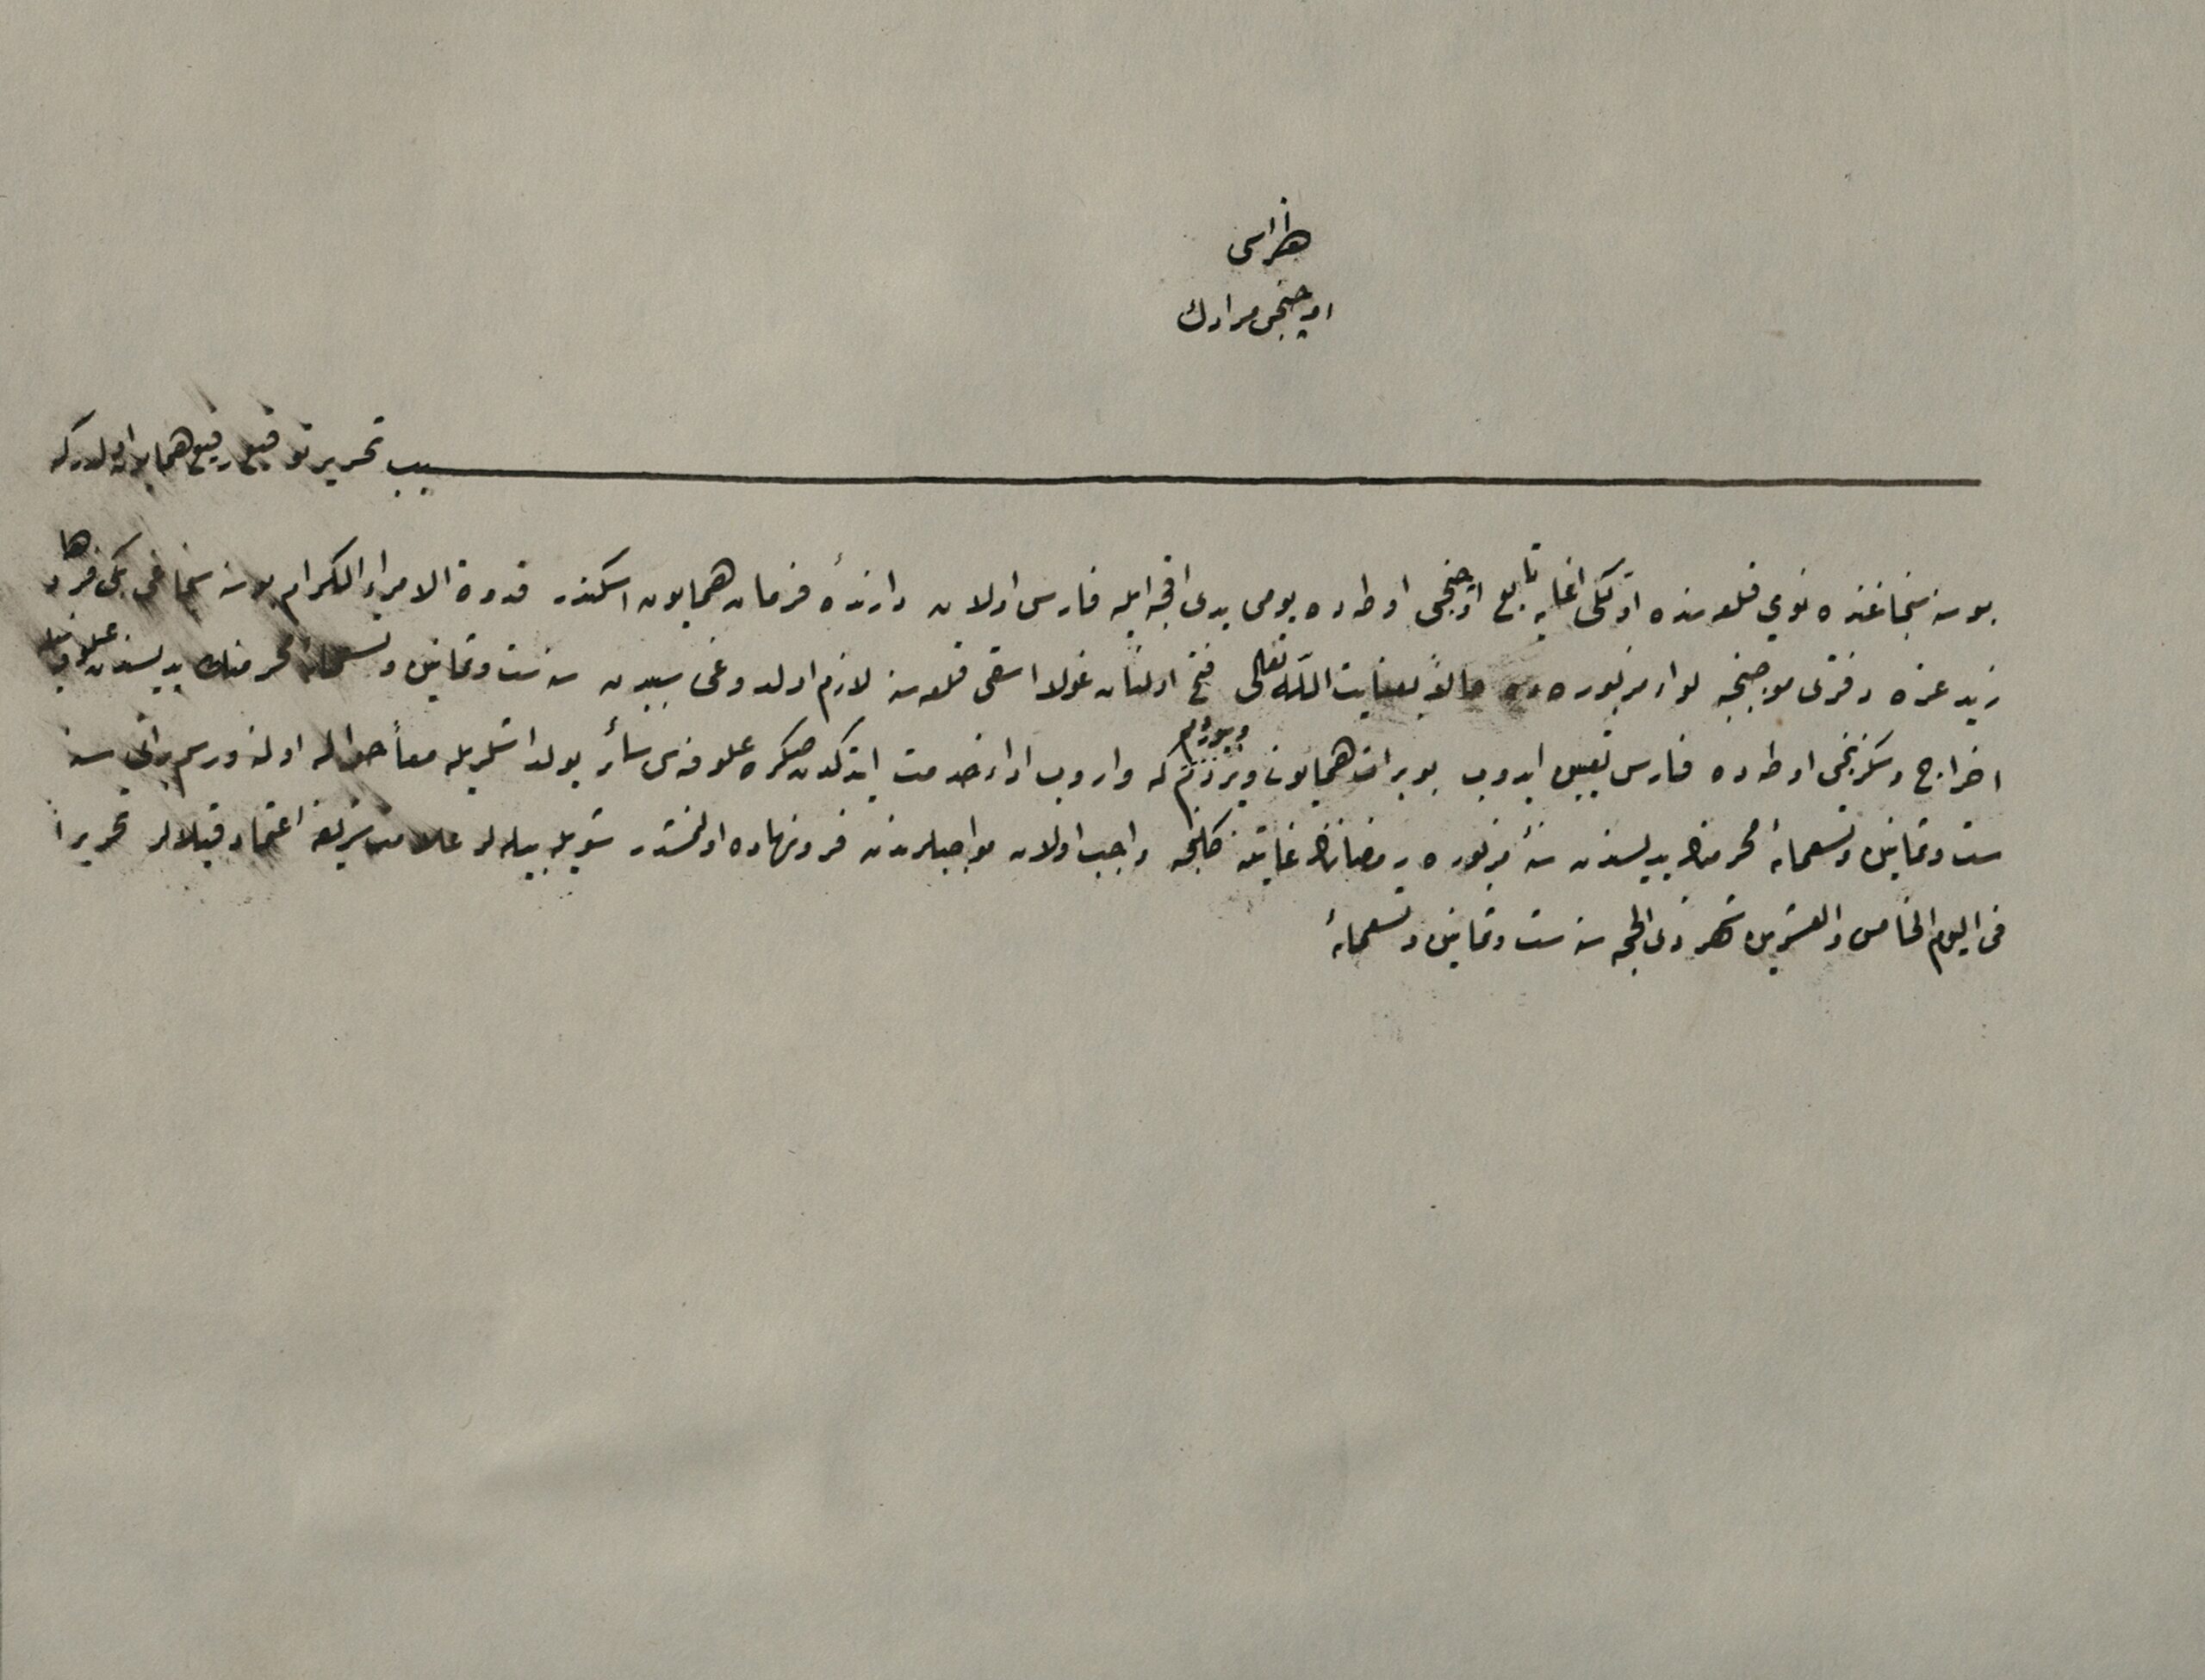 طغراسی
اوچنجی مرادك
سبب تحریر توقیع رفیع همایون اولدر که
بوسنه سنجاغنده نوی قلعه سنده اوتکی اغایه تابع اوچنجی اوطه ده یومی یدی اقچه ایله فارس اولان دارندهٔ فرمان همایون اسکندر قدوة الامراء الکرام بوسنه سنجاغی بکی فرهاد
زید عزه دفتری موجبنجه لواء مزبوره ده حالیا بعنایت الله تعالی فتح اولنان غولا اسقی قلعه سنه لازم اولدوغی سببدن سنه ست وثمانین وتسعمائه محرمنك یدیسندن علوفه سیله
اخراج وسکزنجی اوطه ده فارس تعیین ایدوب بو برات همایونی ویردم وبیوردم که واروب اداء خدمت ایتدکدن صکره علوفه سی سائر یولداشلریله معاً حواله اولنه ورسم براتی سنه
ست وثمانین وتسعمائهٔ محرمنك یدیسندن سنهٔ مزبوره رمضاننك غایتنه کلنجه واجب اولان مواجبلرندن فرونهاده اولنمشدر شویله بیله لر علامت شریفه اعتماد قیله لر تحریراً
فی الیوم الخامس والعشرین شهر ذی الحجه سنه ست وثمانین وتسعمائهٔ